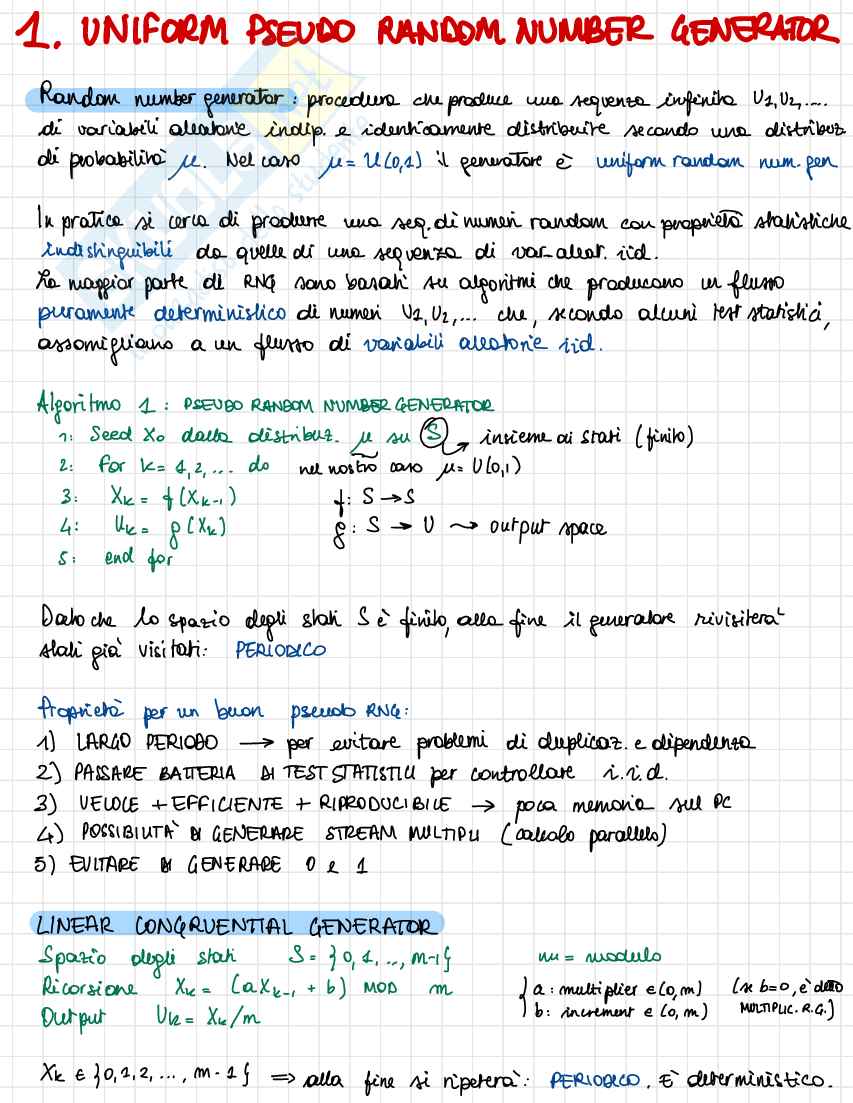 1. UNIFORM PSEUDO RANDOM NUMBER GENERATOR
Random number generator: procedura che produce una sequenza infinita U1,U2,....
di variabili aleatorie indip. e identicamente distribuite secondo una distribuz.
di probabilità μ. Nel caso μ = U(0,1) il generatore è uniform random num. gen.
In pratica si cerca di produrre una seq. di numeri random con proprietà statistiche
indistinguibili da quelle di una sequenza di var. aleat. iid.
La maggior parte di RNG sono basati su algoritmi che producono un flusso
puramente deterministico di numeri U1,U2,... che, secondo alcuni test statistici,
assomigliano a un flusso di variabili aleatorie iid.
Algoritmo 1 : PSEUDO RANDOM NUMBER GENERATOR
1: Seed X0 dalla distribuz. μ su S → insieme di stati (finito)
2: for k = 1,2,... do nel nostro caso μ = U(0,1)
3: Xk = f(Xk-1) f: S → S
4: Uk = g(Xk) g: S → U ⇝ output space
5: end for
Dato che lo spazio degli stati S è finito, alla fine il generatore rivisiterà
stati già visitati: PERIODICO
Proprietà per un buon pseudo RNG:
1) LARGO PERIODO → per evitare problemi di duplicaz. e dipendenza
2) PASSARE BATTERIA DI TEST STATISTICI per controllare i.i.d.
3) VELOCE + EFFICIENTE + RIPRODUCIBILE → poca memoria sul PC
4) POSSIBILITÀ DI GENERARE STREAM MULTIPLI (calcolo parallelo)
5) EVITARE DI GENERARE 0 e 1
LINEAR CONGRUENTIAL GENERATOR
Spazio degli stati S = {0,1,..,m-1} m = modulo
Ricorsione Xk = (aXk-1 + b) MOD m { a : multiplier ∈ (0,m) (se b=0, è detto
Output Uk = Xk/m b: increment ∈ (0,m) MULTIPLIC. R.G.)
Xk ∈ {0,1,2,..., m-1} ⟹ alla fine si ripeterà: PERIODICO. È deterministico.